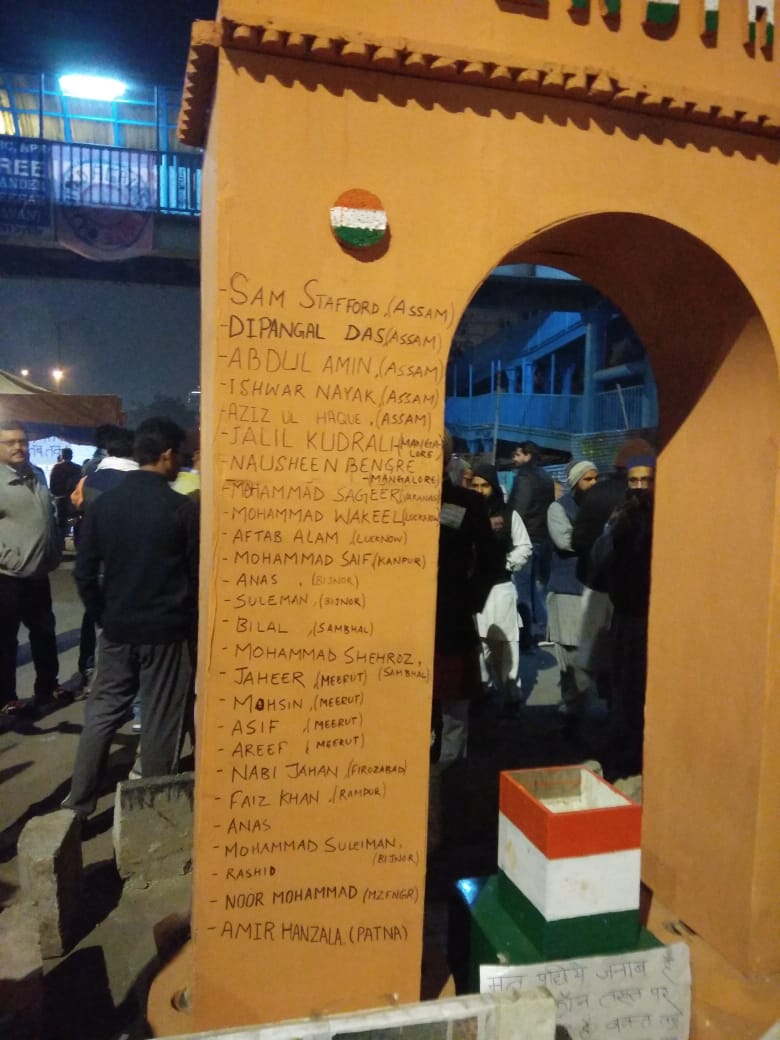 REE
- SAM STAFFORD, (ASSAM)
- DIPANGAL DAS (ASSAM)
- ABDUL AMIN, (ASSAM)
- ISHWAR NAYAK, (ASSAM)
- AZIZ UL HAQUE, (ASSAM)
- JALIL KUDRALI (MANGA-
LORE)
- NAUSHEEN BENGRE
- MANGALORE)
- MOHAMMAD SAGEER, (VARANASI)
- MOHAMMAD WAKEEL (LUCKNOW)
- AFTAB ALAM, (LUCKNOW)
- MOHAMMAD SAIF (KANPUR)
- ANAS, (BIJNOR)
- SULEMAN, (BIJNOR)
- BILAL, (SAMBHAL)
- MOHAMMAD SHEHROZ,
(SAMBHAL)
- JAHEER, (MEERUT)
- MOHSIN, (MEERUT)
- ASIF, (MEERUT)
- AREEF (MEERUT)
- NABI JAHAN, (FIROZABAD)
- FAIZ KHAN, (RAMPUR)
- ANAS
- MOHAMMAD SULEIMAN,
(BIJNOR)
- RASHID
- NOOR MOHAMMAD (MZFNGR)
- AMIR HANZALA, (PATNA)
जनाब
तख्त पर